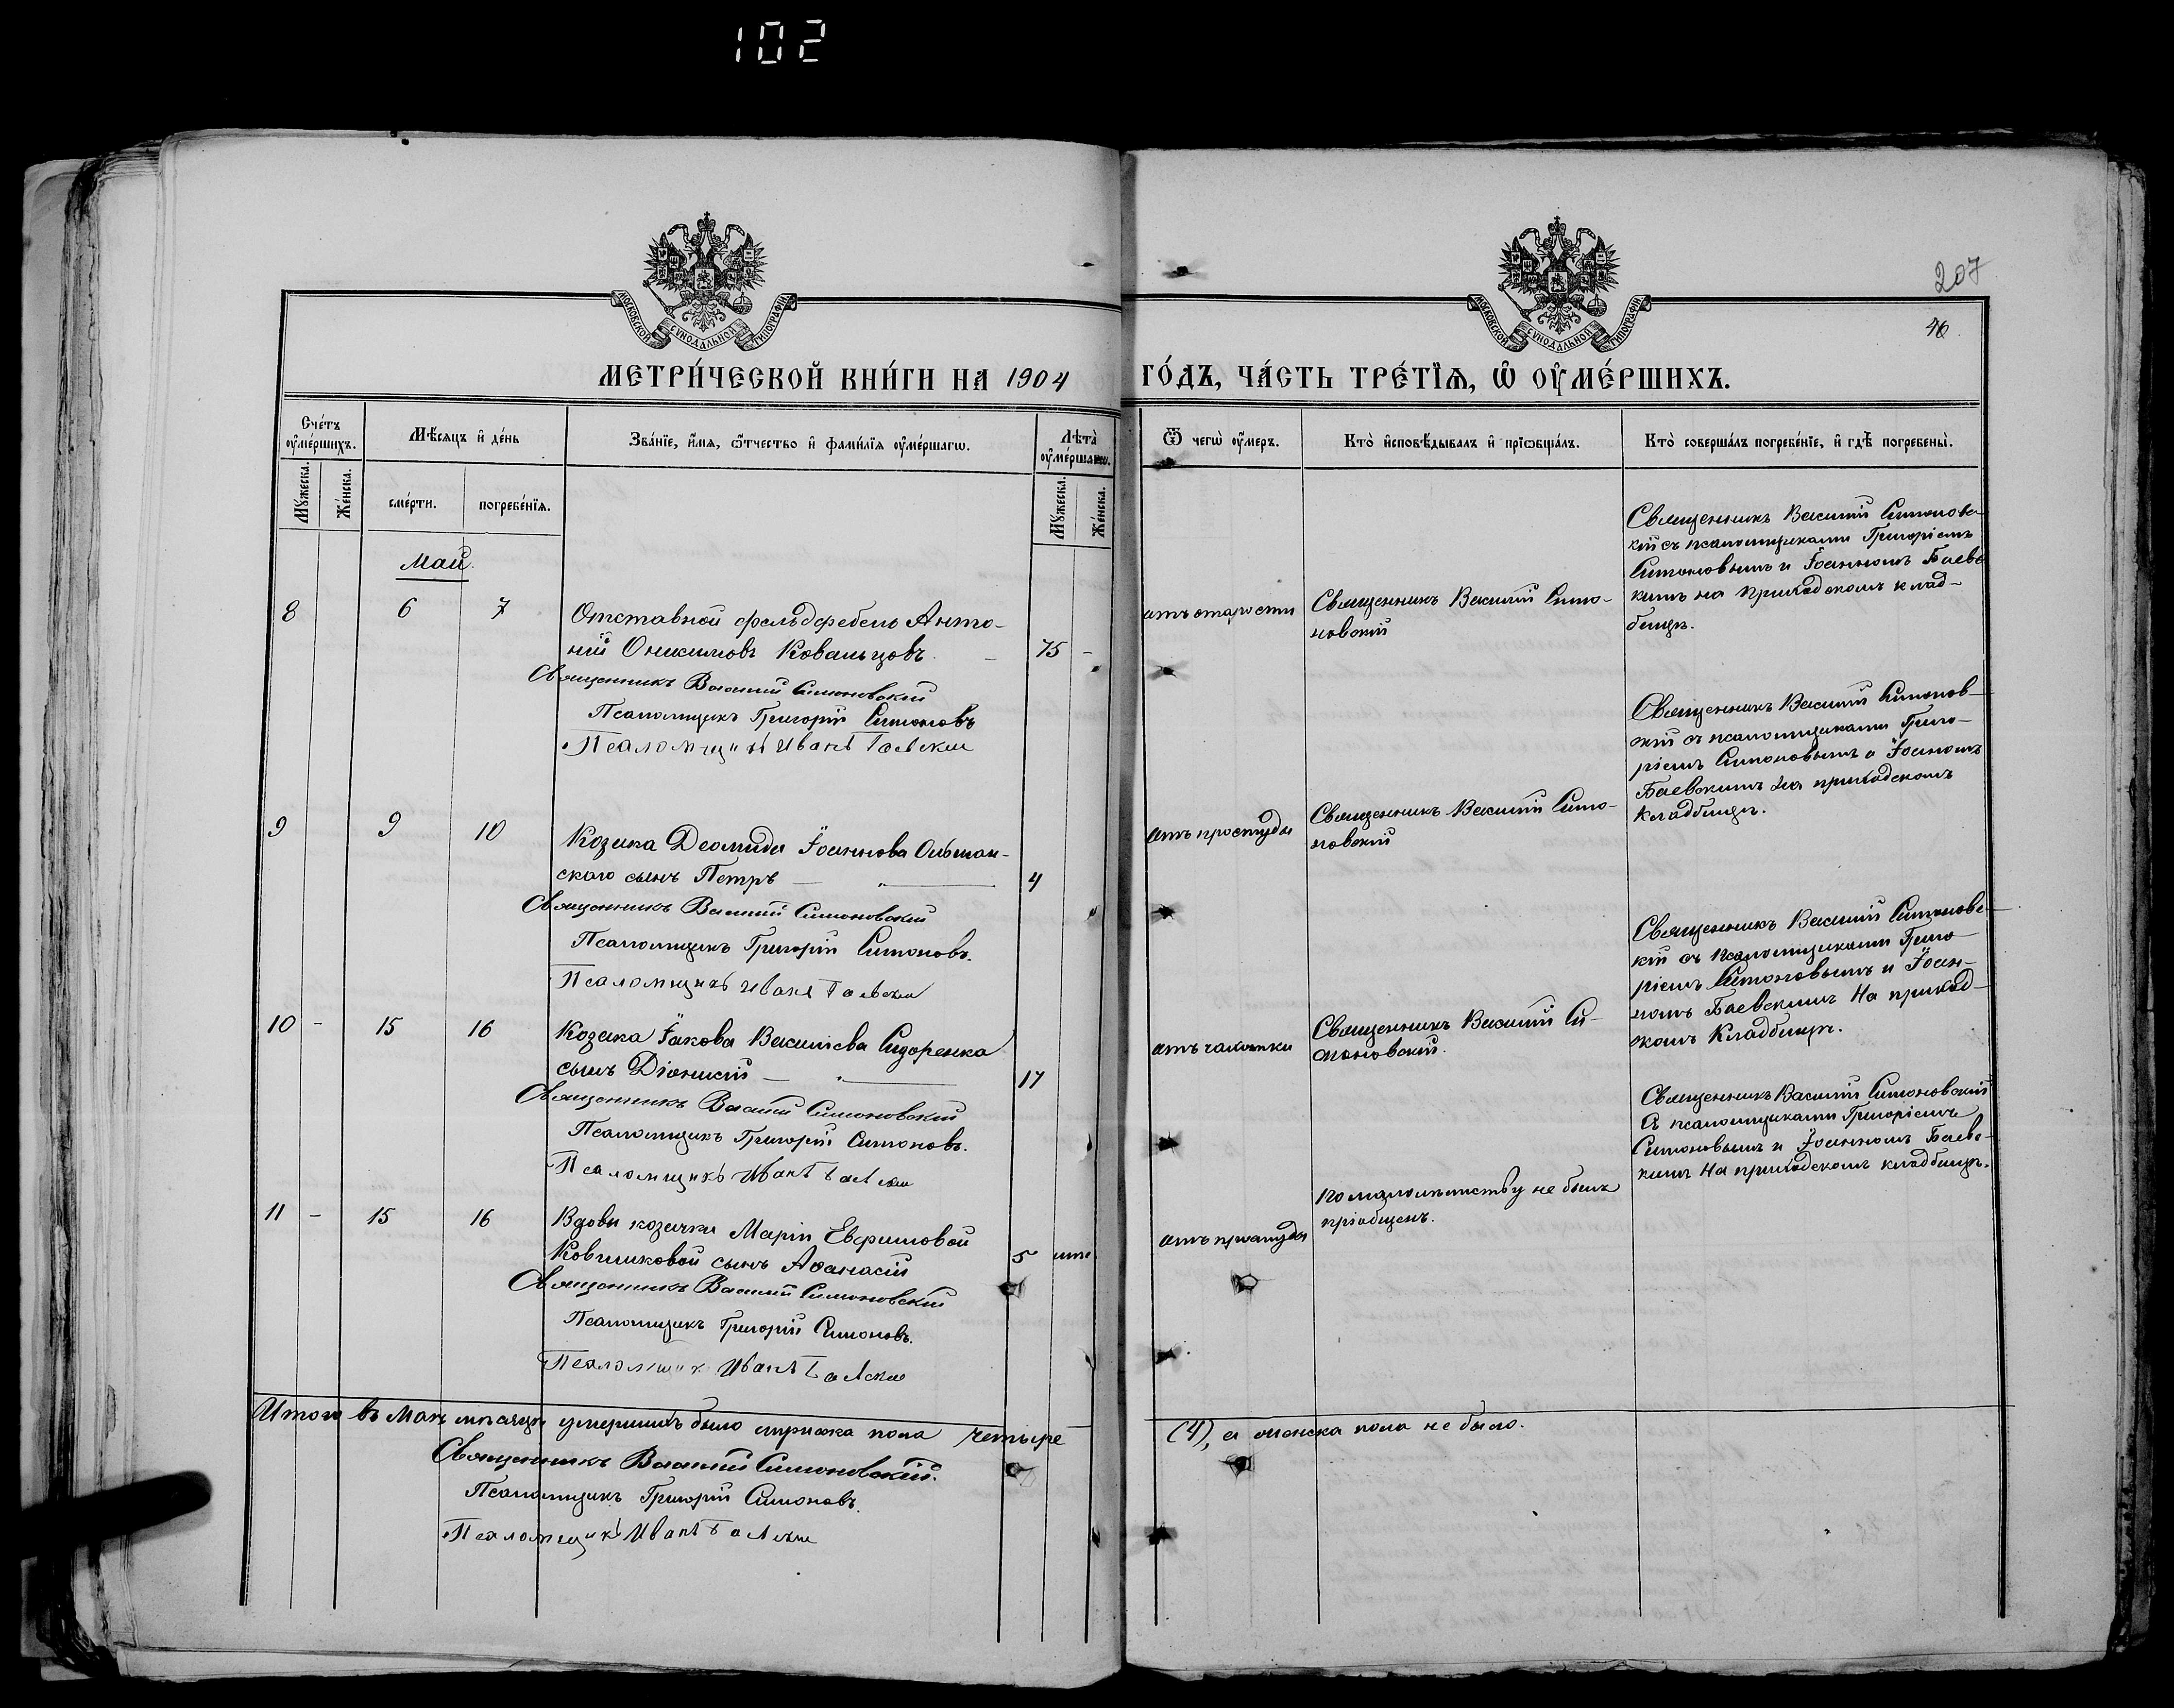 102
МОСКОВСКОЙ СѴНОДАЛЬНОЙ ТИПОГРАФІИ
МОСКОВСКОЙ СѴНОДАЛЬНОЙ ТИПОГРАФІИ
207
46.
МЕТРИ́ЧЕСКОЙ КНИ́ГИ НА 1904
ГО́ДЪ, ЧА́СТЬ ТРЕ́ТЇѦ, Ѡ҆ ОУ҆МЕ́РШИХЪ.
Сче́тъ оу҆ме́ршихъ.
Мꙋ́жеска.
Же́нска.
Мѣ́сѧцъ и҆ де́нь
сме́рти.
погребе́нїѧ.
Зва́нїе, и҆́мѧ, ѻ҆́тчество и҆ фами́лїѧ оу҆ме́ршагѡ.
Лѣ́та оу҆ме́ршагѡ.
Мꙋ́жеска.
Же́нска.
Ѿ чегѡ̀ оу҆́меръ.
Кто̀ и҆сповѣ́дывалъ и҆ прїѡбща́лъ.
Кто̀ соверша́лъ погребе́нїе, и҆ гдѣ̀ погребены̀.
Май.
8 6 7
Отставной фельдфебель Анто-
ній Онисимовъ Ковальцовъ. – 75 –
Священникъ Василій Симоновскій
Псаломщикъ Григорій Симоновъ
Псаломщикъ Иванъ Баевскій
отъ старости
Священникъ Василій Симо-
новскій
Священникъ Василій Симоновс-
кій съ псаломщиками Григоріемъ
Симоновымъ и Іоанномъ Баевс-
кимъ на приходскомъ клад-
бищѣ.
9 9 10
Козака Деомида Іоаннова Ольшан-
скаго сынъ Петръ — 4
Священникъ Василій Симоновскій
Псаломщикъ Григорій Симоновъ.
Псаломщикъ Иванъ Баевскій
отъ простуды
Священникъ Василій Симо-
новскій
Священникъ Василій Симонов-
скій съ псаломщиками Григо-
ріемъ Симоновымъ и Іоанномъ
Баевскимъ на приходскомъ
кладбищѣ.
10 – 15 16
Козака Іакова Василіева Сидоренка
сынъ Діонисій — 17
Священникъ Василій Симоновскій
Псаломщикъ Григорій Симоновъ.
Псаломщикъ Иванъ Баевскій
отъ чахотки
Священникъ Василій Си-
моновскій.
Священникъ Василій Симоновс-
кій съ псаломщиками Григо-
ріемъ Симоновымъ и Іоан-
номъ Баевскимъ на приход-
скомъ кладбищѣ.
11 – 15 16
Вдовы козачки Маріи Евфимовой
Ковшиковой сынъ Аѳанасій 5
Священникъ Василій Симоновскій
Псаломщикъ Григорій Симоновъ.
Псаломщикъ Иванъ Баевскій
отъ простуды
По малолѣтству не былъ
пріобщенъ.
Священникъ Василій Симоновскій
съ псаломщиками Григоріемъ
Симоновымъ и Іоанномъ Баевс-
кимъ на приходскомъ кладбищѣ.
Итого въ Маѣ мѣсяцѣ умершихъ было мужска пола четыре
(4), а женска пола не было.
Священникъ Василій Симоновскій.
Псаломщикъ Григорій Симоновъ.
Псаломщикъ Иванъ Баевскій